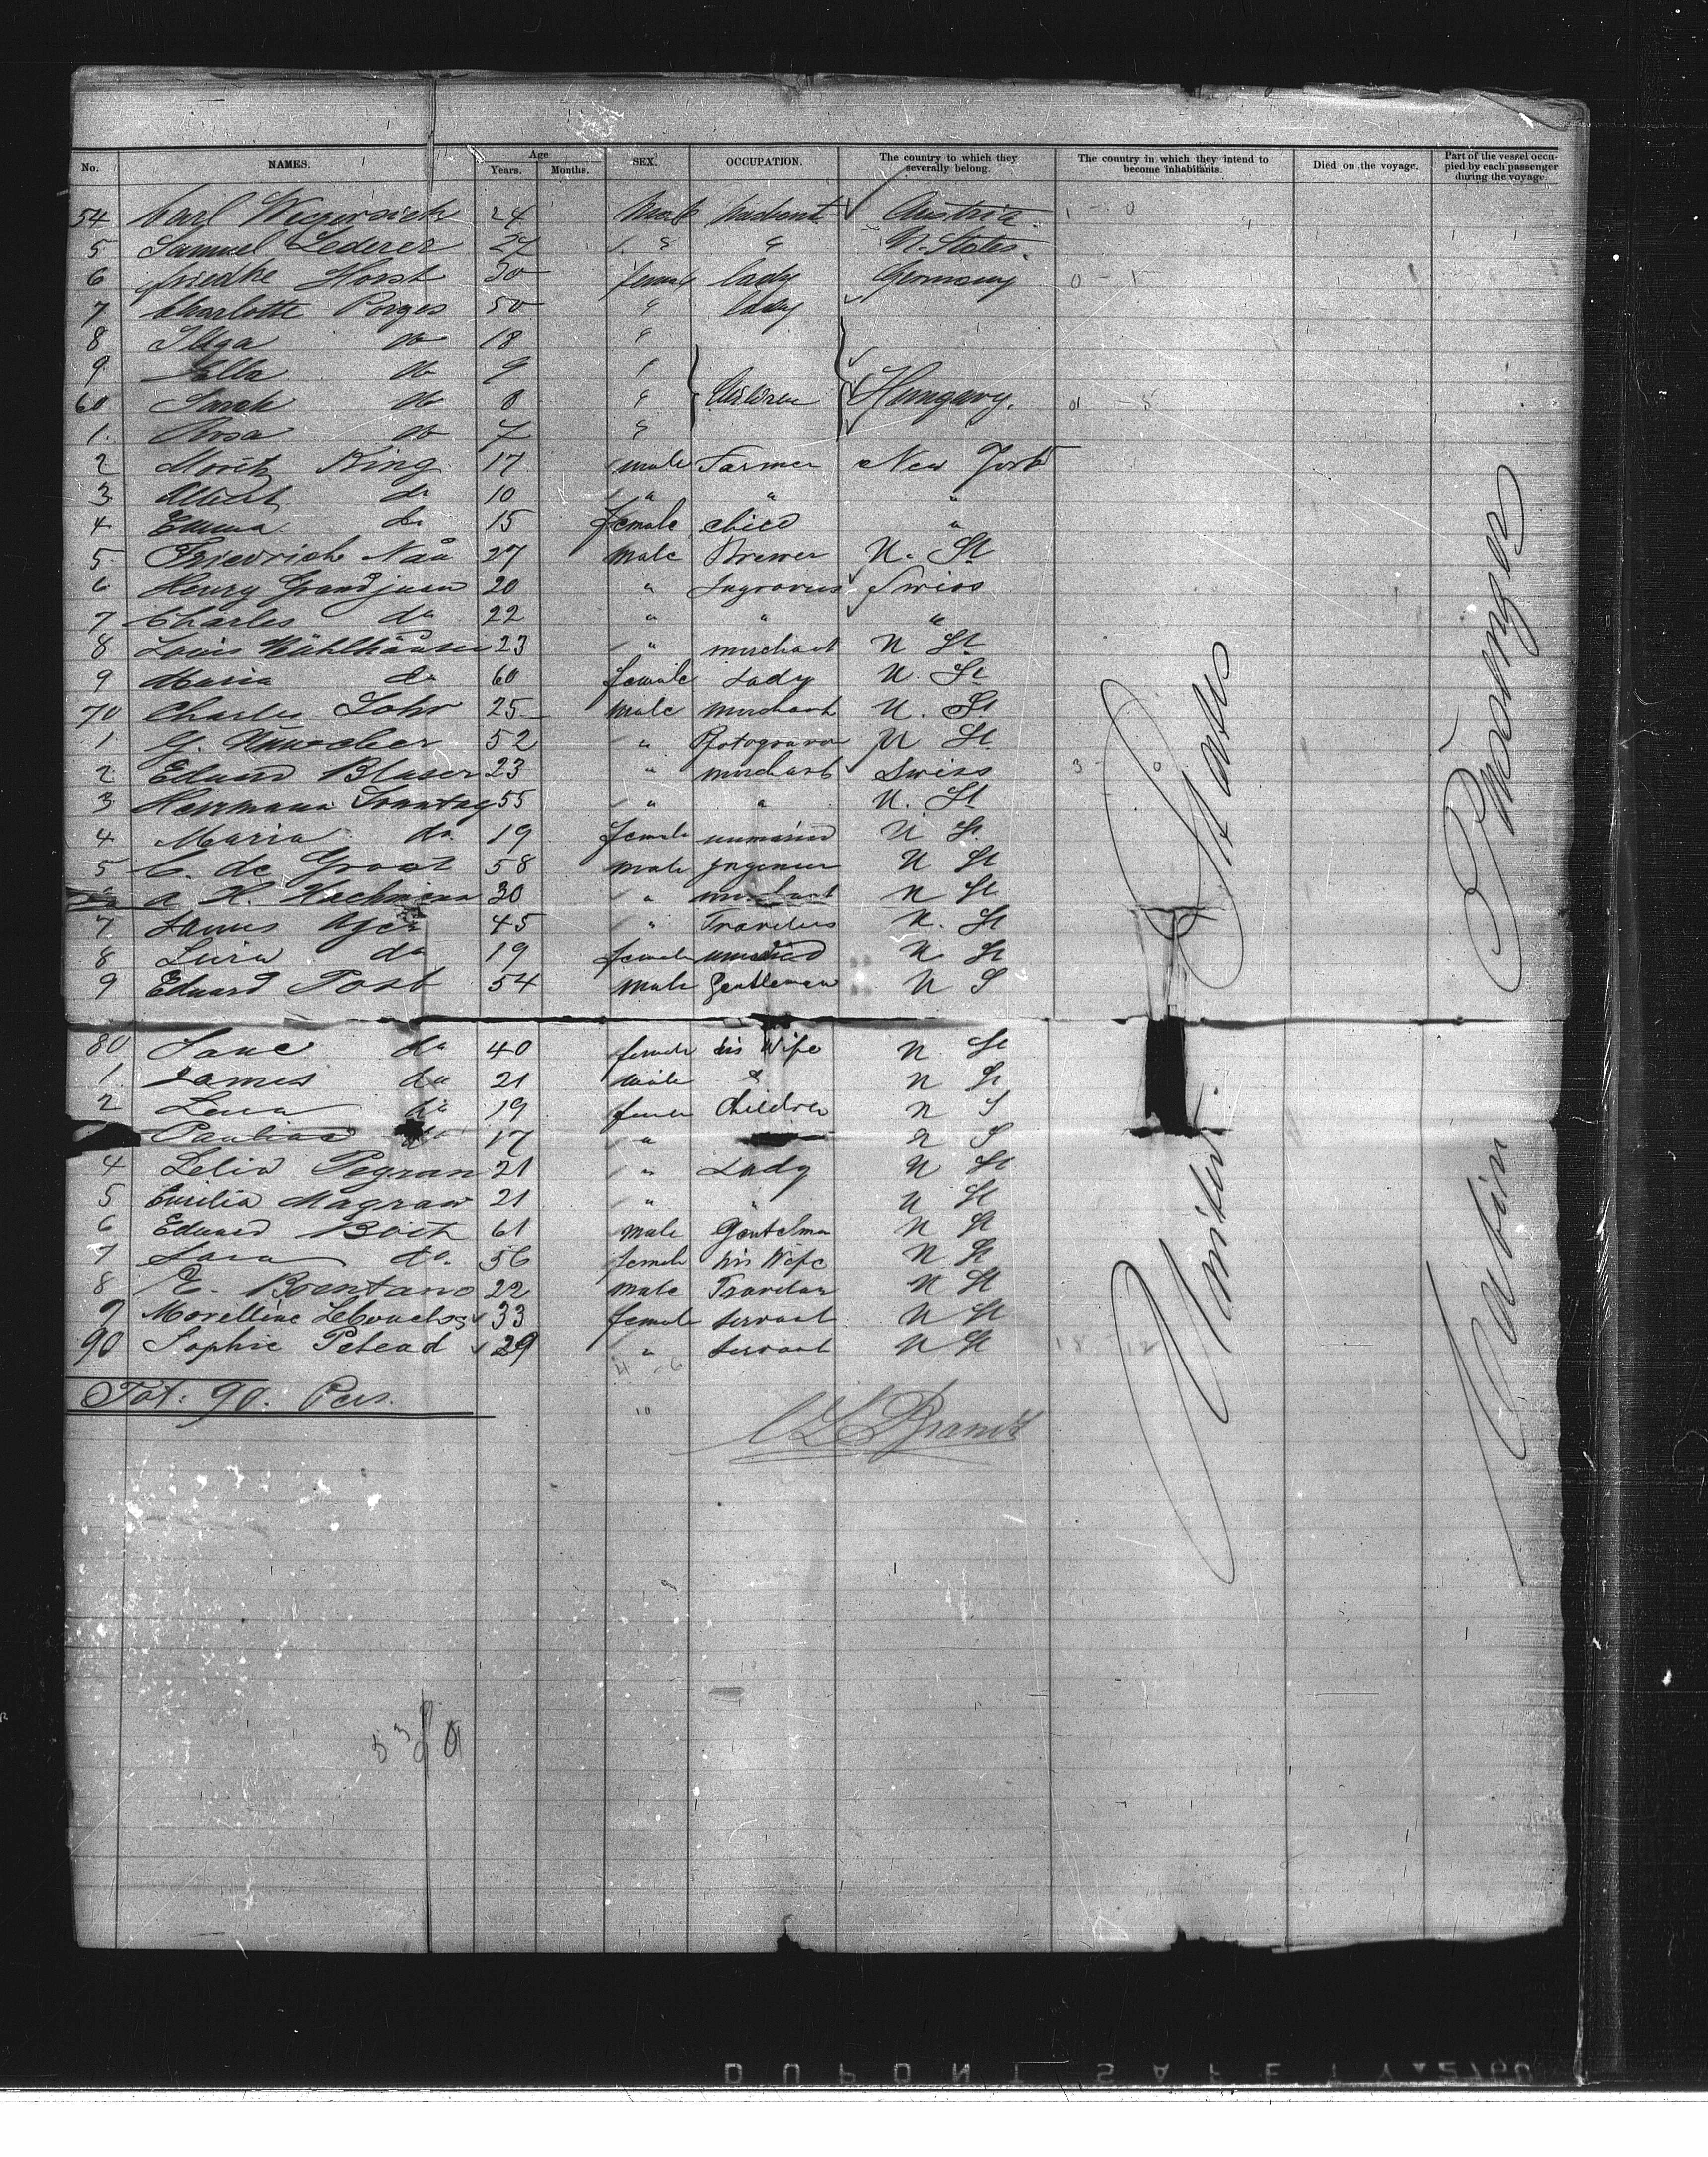 No. NAMES. Age Years. Months. SEX. OCCUPATION. The country to which they severally belong. The country in which they intend to become inhabitants. Died on the voyage. Part of the vessel occupied by each passenger during the voyage.
54 Carl 24 Male Austria
5 Samuel Lederer 27 " " U. States.
6 Horst 30 female lady Germany
7 Charlotte Porges 50 " lady
8 Ilga do 18 "
9 Ella do 9 "
60 Sarah do 8 " Children Hungary.
1. Rosa do 7 "
2 Moritz King 17 male Farmer New York
3 Albert do 10 " " "
4 Emma do 15 female child "
5 Friedrich Nau 27 male Brewer U. St
6 Henry Grandjean 20 " Ingravers Swiss
7 Charles do 22 " " "
8 Louis Mühlhäuser 23 " merchant U St
9 Maria do 60 female Lady U. St
70 Charles Lohr 25 male Merchant U. St
1 G. 52 " U St
2 Eduard Blaser 23 " merchant Swiss
3 Herrmann Sonntag 55 " " U. St
4 Maria do. 19 female unmaried U St.
5 C. de Groot 58 male Ingenieur U St
A. H. 30 " merchant U St
7 James 45 " Travelers U. St
8 do 19 female U St
9 Eduard Post 54 male Gentleman U S
80 Jane do 40 female his Wife U. St
1 James do 21 male & U St
2 Lena do 19 female Children U S
Pauline do 17 " U S
4 Lelia Pegran 21 " Lady U St
5 Emilia Magraw 21 " " U St
6 Eduard 61 male Gentelman U St
7 Sara do. 56 female his Wife U St
8 E. Brentano 22 male Travelar U St
9 33 female servant U St
90 Sophie Petead 29 " servant U St
Tot. 90. Pers.
United States
Cabin Passenger
DUPONT SAFETY